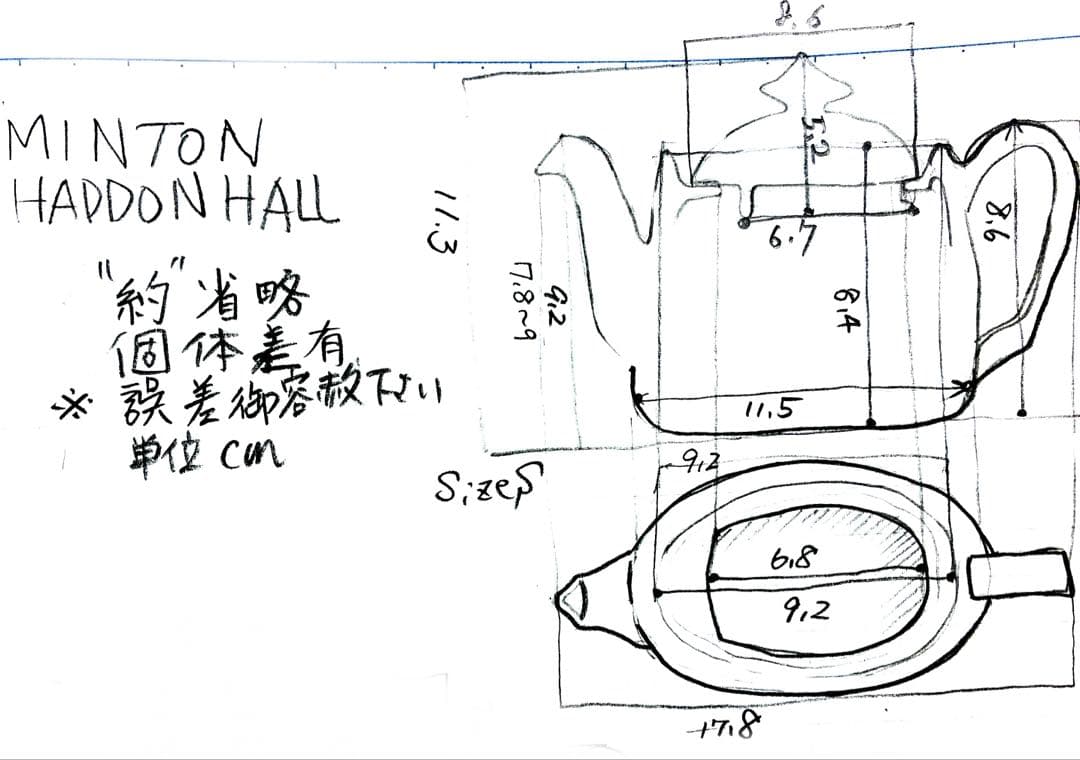 MINTON
HADDON HALL
"約"省略
個体差有
※ 誤差御容赦下さい
単位 cm
11.3
9.2
7.8~9
8.6
5.2
6.7
8.4
8.6
11.5
SizeS
9.2
6.8
9.2
17.8